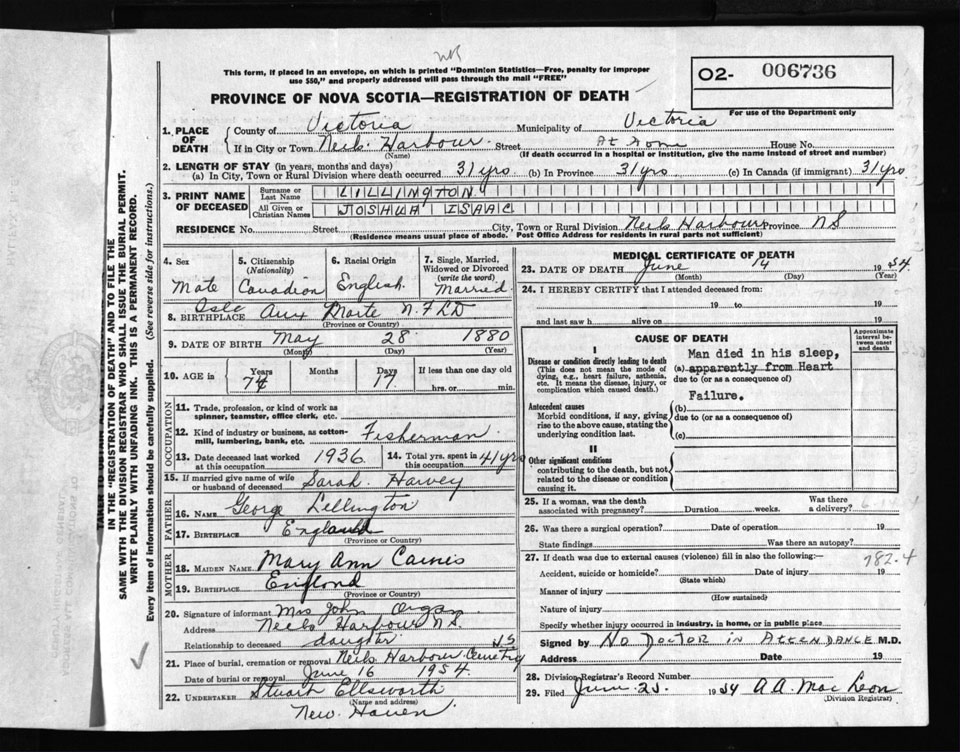 This form, if placed in an envelope, on which is printed "Dominion Statistics—Free, penalty for improper
use $50," and properly addressed will pass through the mail "FREE"
PROVINCE OF NOVA SCOTIA—REGISTRATION OF DEATH
02- 006736
For use of the Department only
1. PLACE OF DEATH
County of Victoria Municipality of Victoria
If in City or Town Neils Harbour Street At Home House No.
(Name) (If death occurred in a hospital or institution, give the name instead of street and number)
2. LENGTH OF STAY (in years, months and days)
(a) In City, Town or Rural Division where death occurred 31 yrs (b) In Province 31 yrs (c) In Canada (if immigrant) 31 yrs
3. PRINT NAME OF DECEASED
Surname or Last Name LILLINGTON
All Given or Christian Names JOSHUA ISAAC
RESIDENCE No. Street City, Town or Rural Division Neils Harbour Province NS
(Residence means usual place of abode. Post Office Address for residents in rural parts not sufficient)
4. Sex
Male
5. Citizenship (Nationality)
Canadian
6. Racial Origin
English
7. Single, Married, Widowed or Divorced (write the word)
Married
8. BIRTHPLACE Isle Aux Morte NFLD
(Province or Country)
9. DATE OF BIRTH May 28 1880
(Month) (Day) (Year)
10. AGE in Years Months Days If less than one day old
74 17 hrs. or min.
OCCUPATION
11. Trade, profession, or kind of work as spinner, teamster, office clerk, etc.
12. Kind of industry or business, as cotton-mill, lumbering, bank, etc. Fisherman
13. Date deceased last worked at this occupation 1936
14. Total yrs. spent in this occupation 41 yrs
15. If married give name of wife or husband of deceased Sarah Harvey
FATHER
16. NAME George Lellington
17. BIRTHPLACE England
(Province or Country)
MOTHER
18. MAIDEN NAME Mary Ann
19. BIRTHPLACE England
(Province or Country)
20. Signature of informant Mrs John Organ
Address Neils Harbour N.S.
Relationship to deceased daughter
21. Place of burial, cremation or removal Neils Harbour Cemetry NS
Date of burial or removal June 16 1954
22. UNDERTAKER Stuart Ellsworth
(Name and address)
New Haven
MEDICAL CERTIFICATE OF DEATH
23. DATE OF DEATH June 14 1954
(Month) (Day) (Year)
24. I HEREBY CERTIFY that I attended deceased from:
19 to 19
and last saw h alive on 19
CAUSE OF DEATH
Approximate interval between onset and death
I
Disease or condition directly leading to death
(This does not mean the mode of dying, e.g., heart failure, asthenia, etc. It means the disease, injury, or complication which caused death.)
Man died in his sleep,
(a) apparently from Heart
due to (or as a consequence of)
Failure.
Antecedent causes
Morbid conditions, if any, giving rise to the above cause, stating the underlying condition last.
(b)
due to (or as a consequence of)
(c)
II
Other significant conditions
contributing to the death, but not related to the disease or condition causing it.
25. If a woman, was the death associated with pregnancy? Duration weeks. Was there a delivery?
26. Was there a surgical operation? Date of operation 19
State findings Was there an autopsy?
27. If death was due to external causes (violence) fill in also the following:—
782.4
Accident, suicide or homicide? Date of injury 19
(State which)
Manner of injury
(How sustained)
Nature of injury
Specify whether injury occurred in industry, in home, or in public place
Signed by NO DOCTOR IN ATTENDANCE M.D.
Address Date 19
28. Division Registrar's Record Number
29. Filed June 25 1954 A A. MacLeon
(Division Registrar)
IN THE "REGISTRATION OF DEATH" AND TO FILE THE
SAME WITH THE DIVISION REGISTRAR WHO SHALL ISSUE THE BURIAL PERMIT.
WRITE PLAINLY WITH UNFADING INK. THIS IS A PERMANENT RECORD.
Every item of information should be carefully supplied. (See reverse side for instructions.)